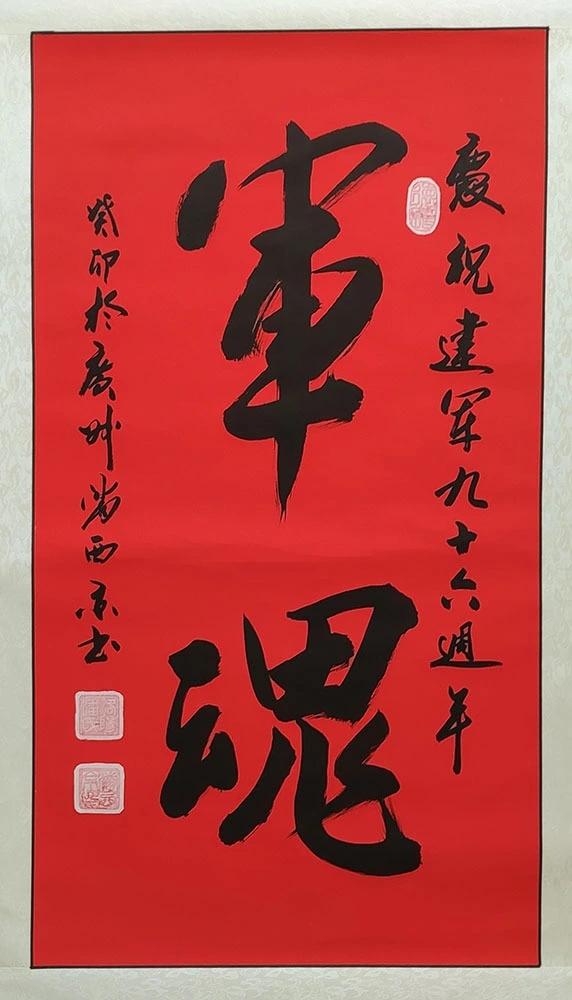 慶祝建軍九十六週年
軍魂
癸卯於廣州
書